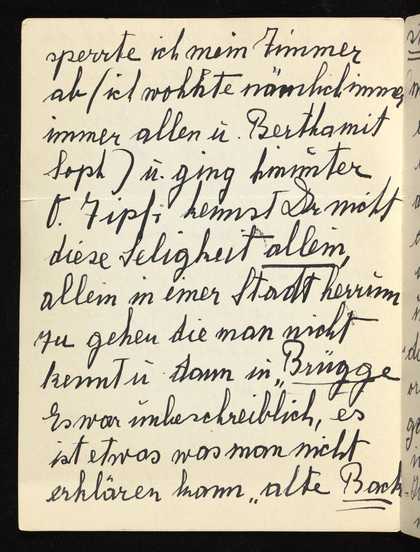 sperrte ich mein Zimmer
ab (ich wohnte nämlich immer
immer allen u. Berthamit
Soph) u. ging hinunter
O. Zipf: kennst Du nicht
diese Seligkeit allein,
allein in einer Stadt herrum
zu gehen die man nicht
kennt u dann in „Brügge
Es war unbeschreiblich, es
ist etwas was man nicht
erklären kann „alte Back-